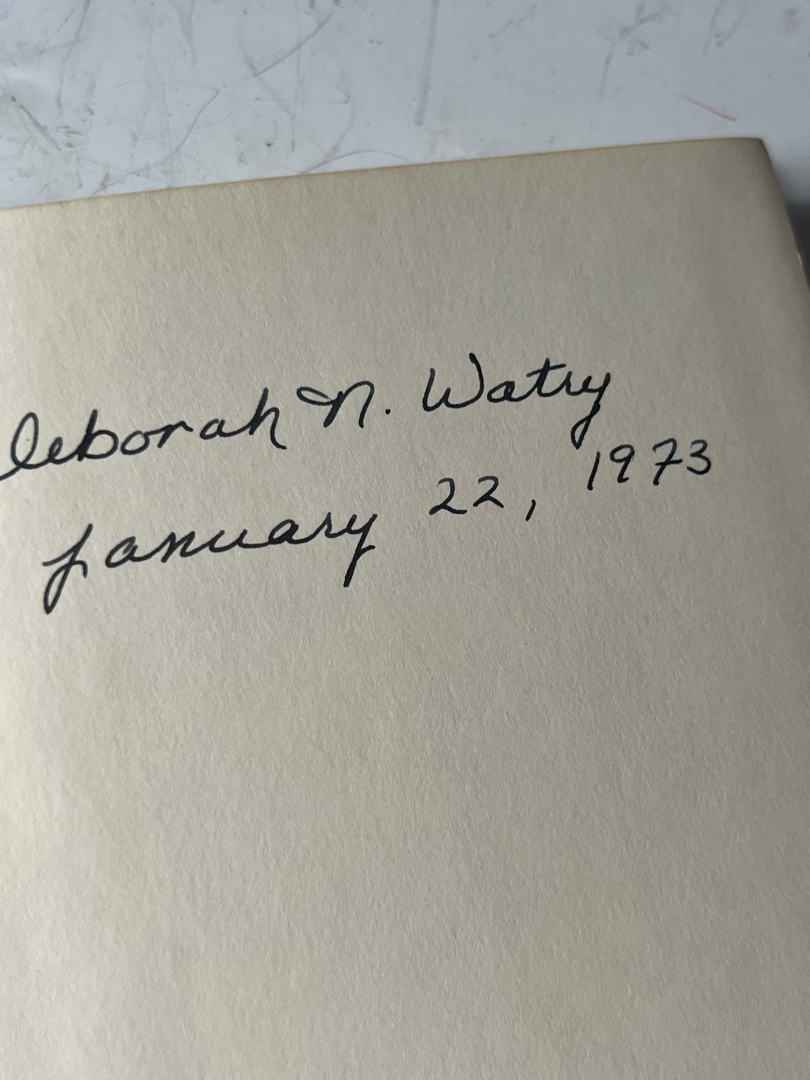 Deborah N. Watry
January 22, 1973